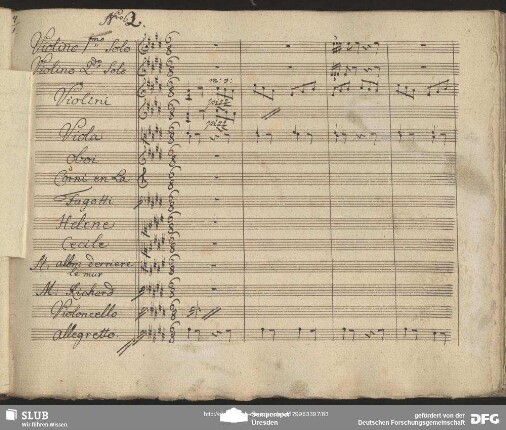 Nro 2.
Violino 1mo Solo
Violino 2do Solo
Violini
Viola
Oboi
Corni en La
Fagotti
Helene
Cecile
derriere
le mur
M: Richard
Violoncello
Allegretto.
SLUB
Wir führen Wissen.
Semperoper
Dresden
gefördert von der
Deutschen Forschungsgemeinschaft
DFG